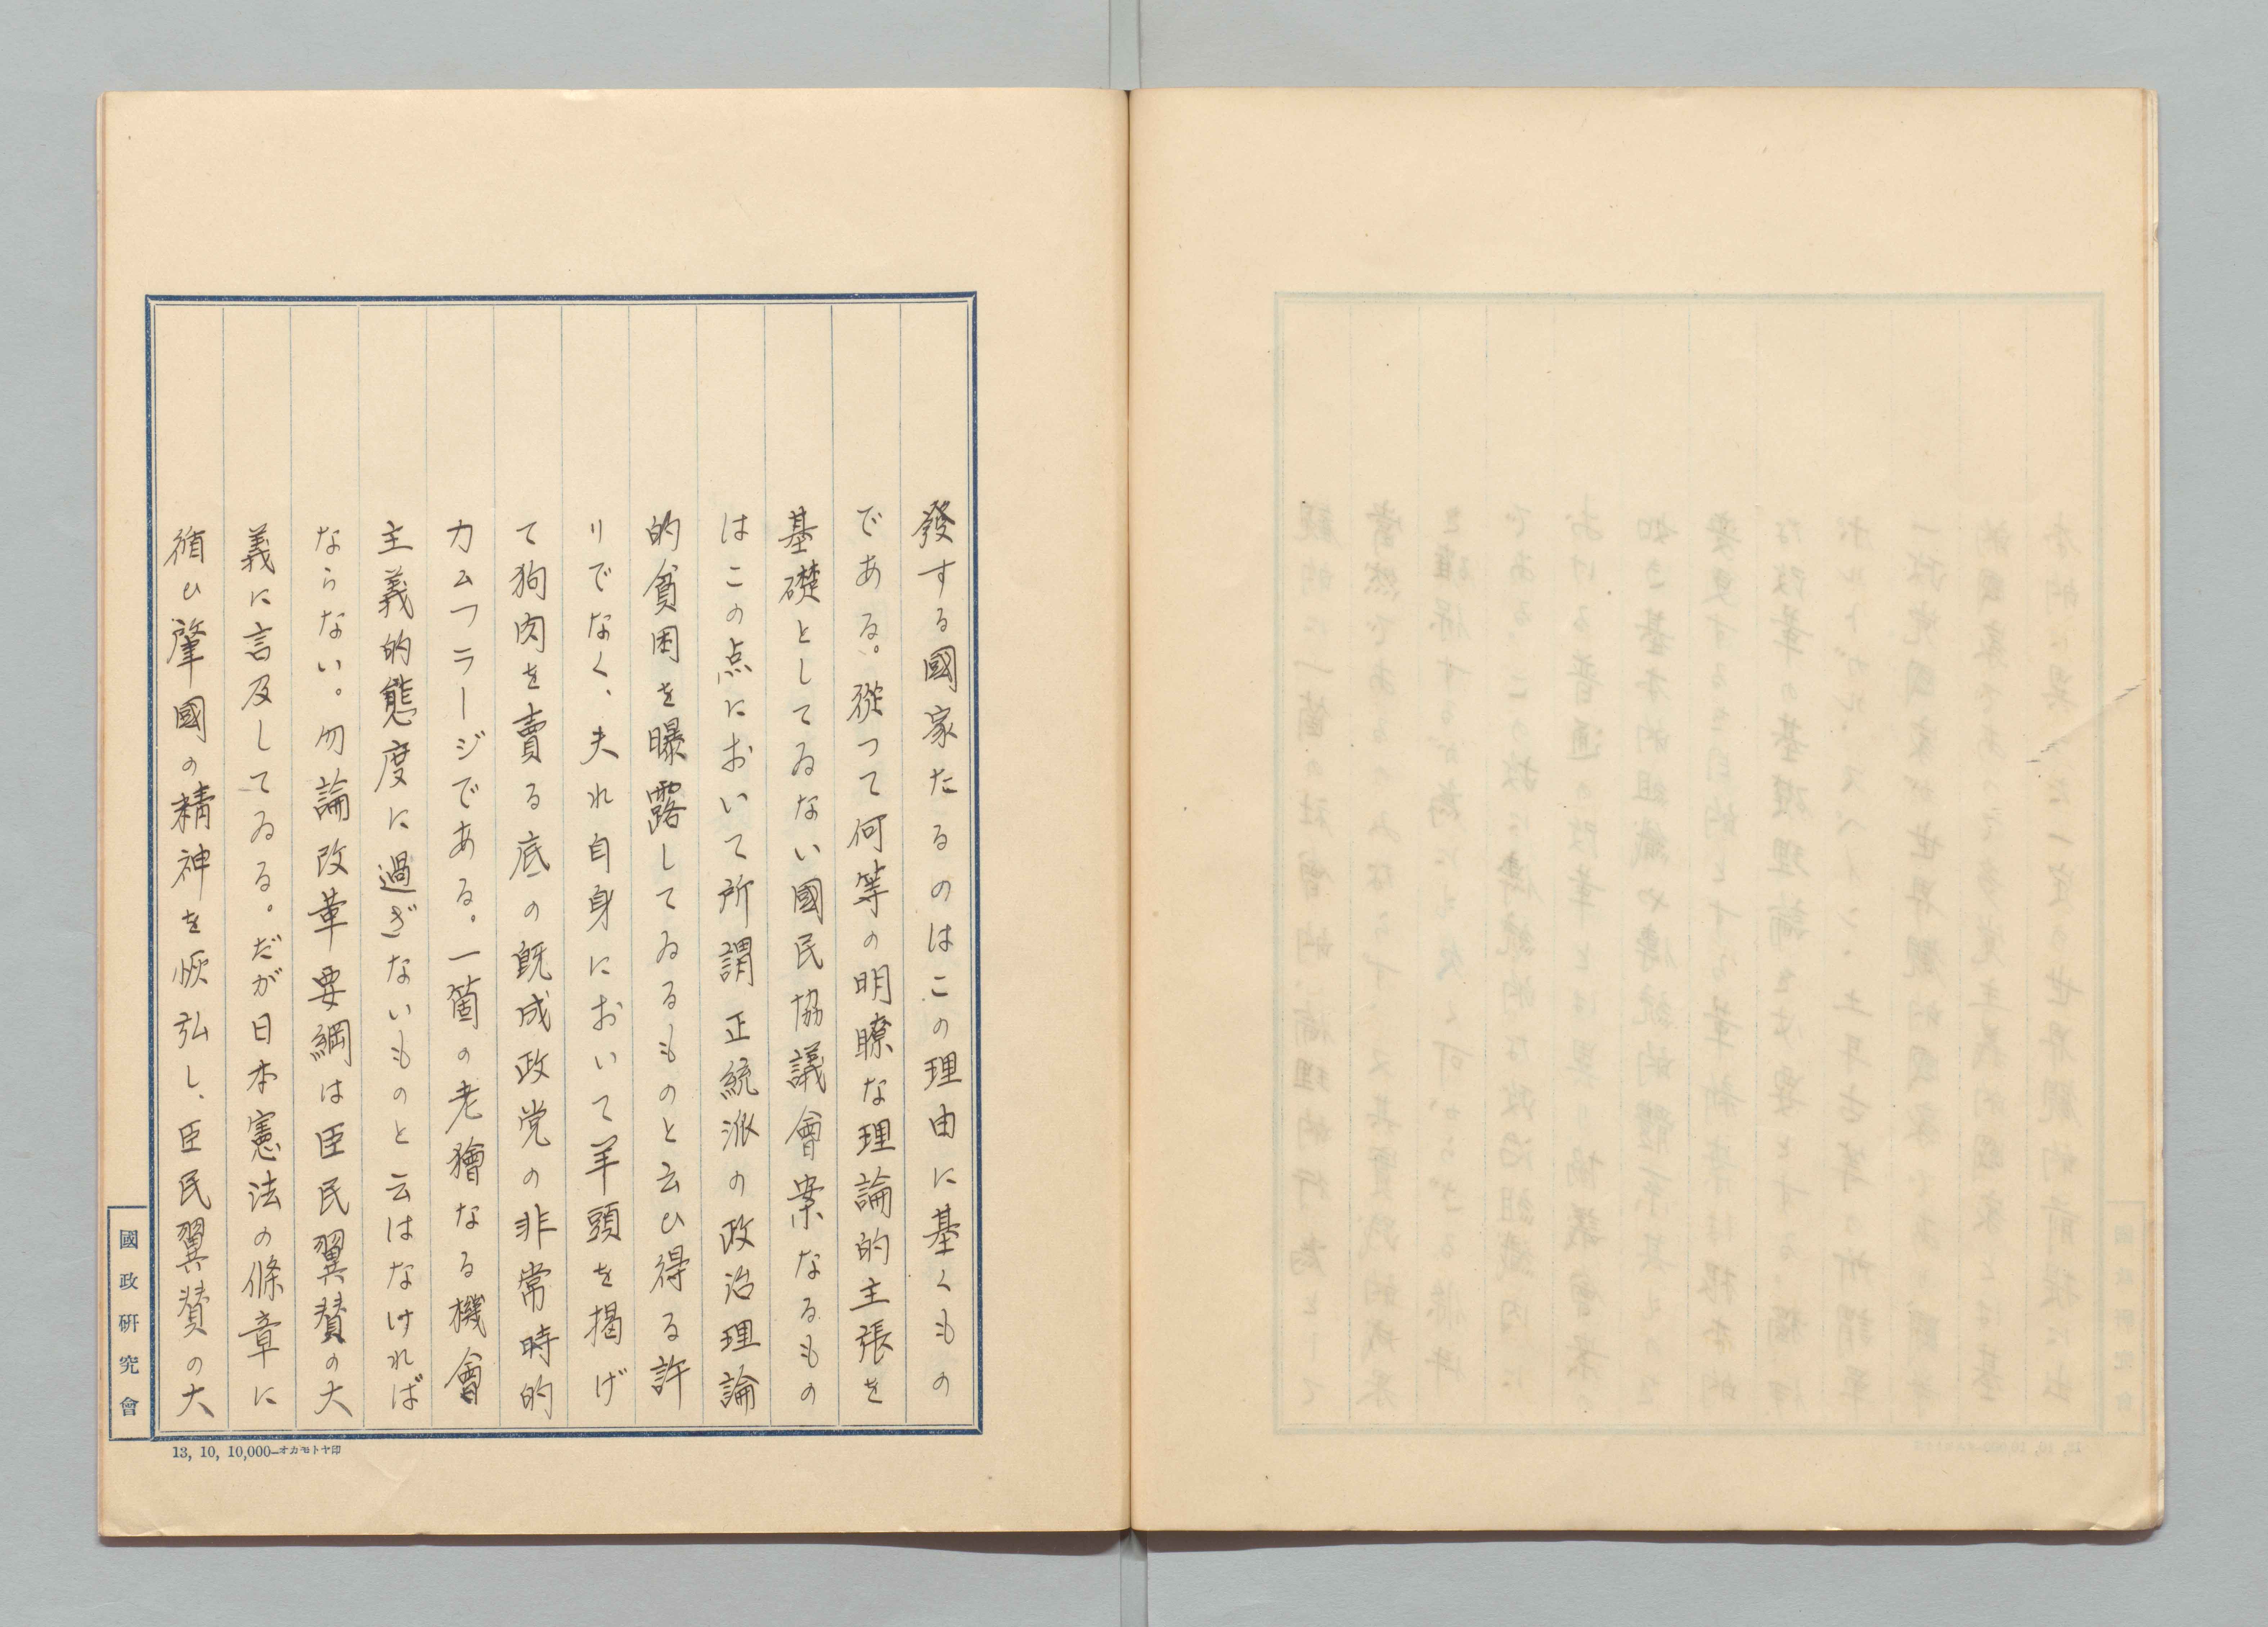 發する國家たるのはこの理由に基くもの
である。從つて何等の明瞭な理論的主張を
基礎としてゐない國民協議會案なるもの
はこの点において所謂正統派の政治理論
的貧困を曝露してゐるものと云ひ得る許
りでなく、夫れ自身において羊頭を揭げ
て狗肉を賣る底の既成政党の非常時的
カムフラージである。一箇の老獪なる機會
主義的態度に過ぎないものと云はなければ
ならない。勿論改革要綱は臣民翼賛の大
義に言及してゐる。だが日本憲法の條章に
循ひ肇國の精神を恢弘し、臣民翼賛の大
國政研究會
13, 10, 10,000—オカモトヤ印